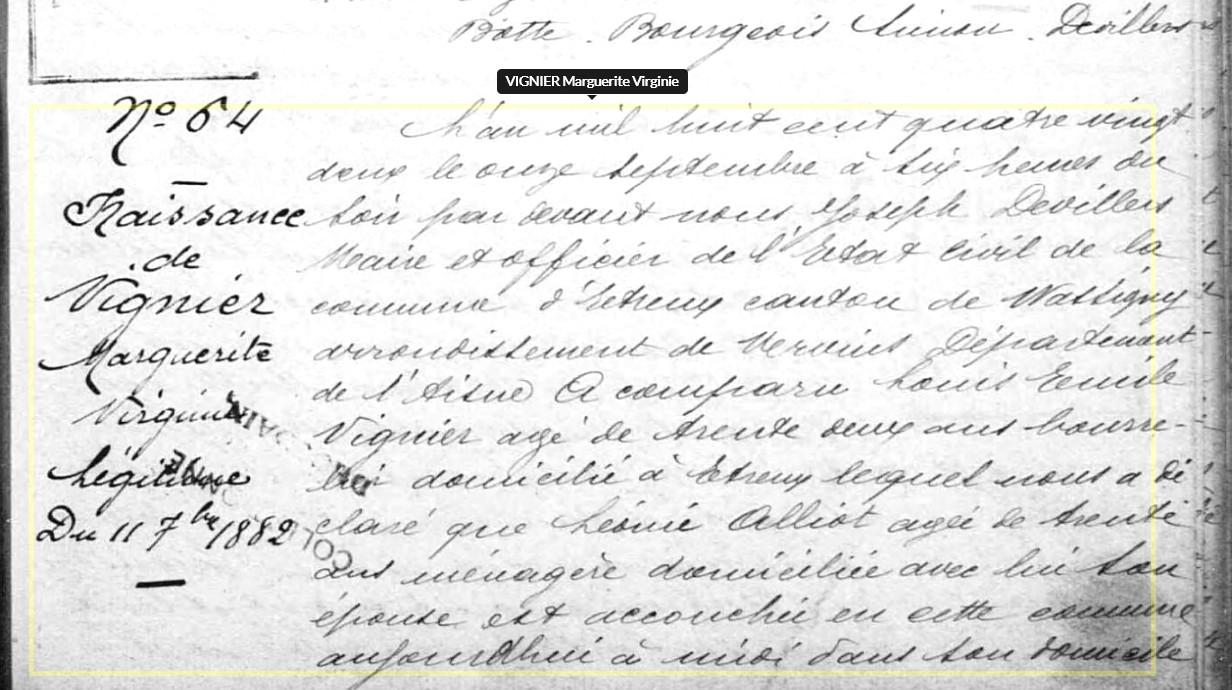 Botte . Bourgeois Simon . Devillers
VIGNIER Marguerite Virginie
N° 64
Naissance
de
Vignier
Marguerite
Virginie
Légitime
Du 11 7bre 1882
L'an mil huit cent quatre vingt
deux le onze Septembre à six heures du
soir par devant nous Joseph Devillers
Maire et officier de l'Etat civil de la
commune d'Etreux canton de Wassigny
arrondissement de Vervins Département
de l'Aisne A comparu Louis Emile
Vignier agé de trente deux ans bourre-
lier domicilié à Etreux lequel nous a dé
claré que Léonie Alliot agée de trente
ans ménagère domiciliée avec lui son
épouse est accouchée en cette commune
aujourd'hui à midi dans son domicile